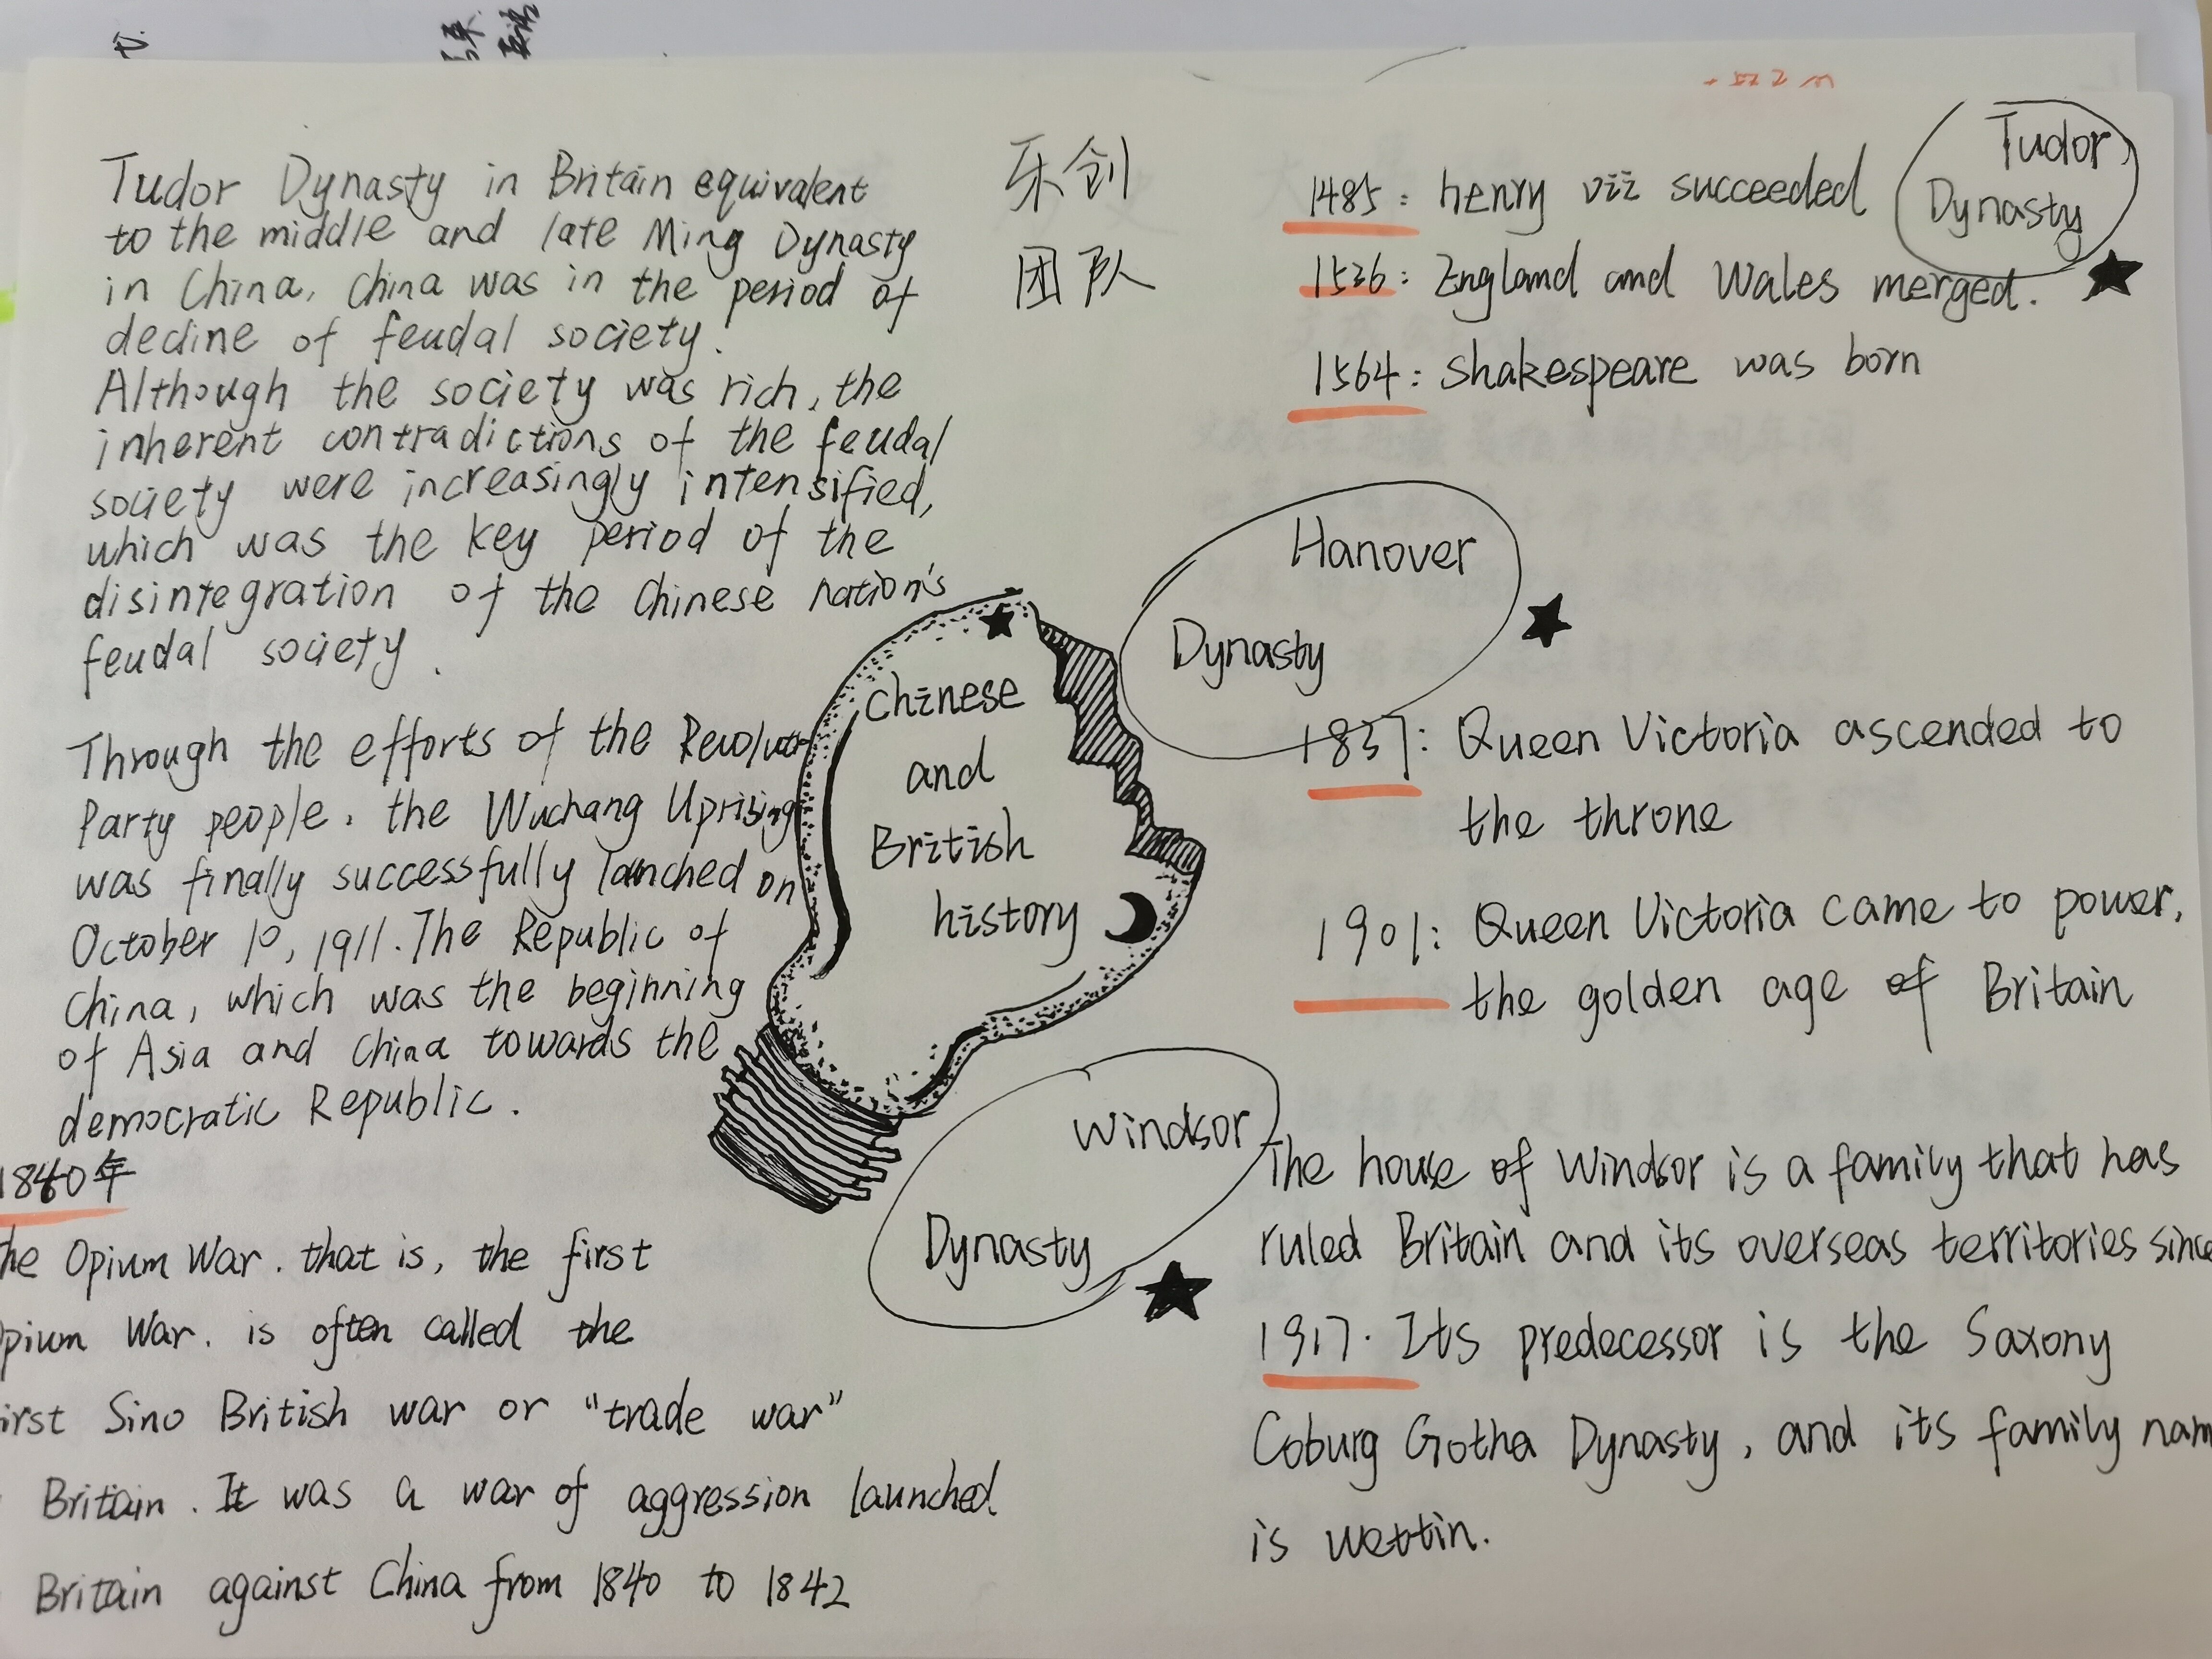 Tudor Dynasty in Britain equivalent
to the middle and late Ming Dynasty
in China, China was in the period of
decline of feudal society.
Although the society was rich, the
inherent contradictions of the feudal
society were increasingly intensified,
which was the key period of the
disintegration of the Chinese nation's
feudal society.
Through the efforts of the
Party people, the Wuchang Uprising
was finally successfully lanched on
October 10, 1911. The Republic of
China, which was the beginning
of Asia and China towards the
democratic Republic.
1840年
he Opium War. that is, the first
pium War. is often called the
irst Sino British war or "trade war"
Britain. It was a war of aggression launched
Britain against China from 1840 to 1842
乐创
团队
Chinese
and
British
history
Tudor
Dynasty
1485: henry vii succeeded
1536: England and Wales merged.
1564: Shakespeare was born
Hanover
Dynasty
1837: Queen Victoria ascended to
the throne
1901: Queen Victoria came to power,
the golden age of Britain
Windsor
Dynasty
The house of Windsor is a family that has
ruled Britain and its overseas territories since
1917. Its predecessor is the Saxony
Coburg Gotha Dynasty, and its family nam
is wettin.